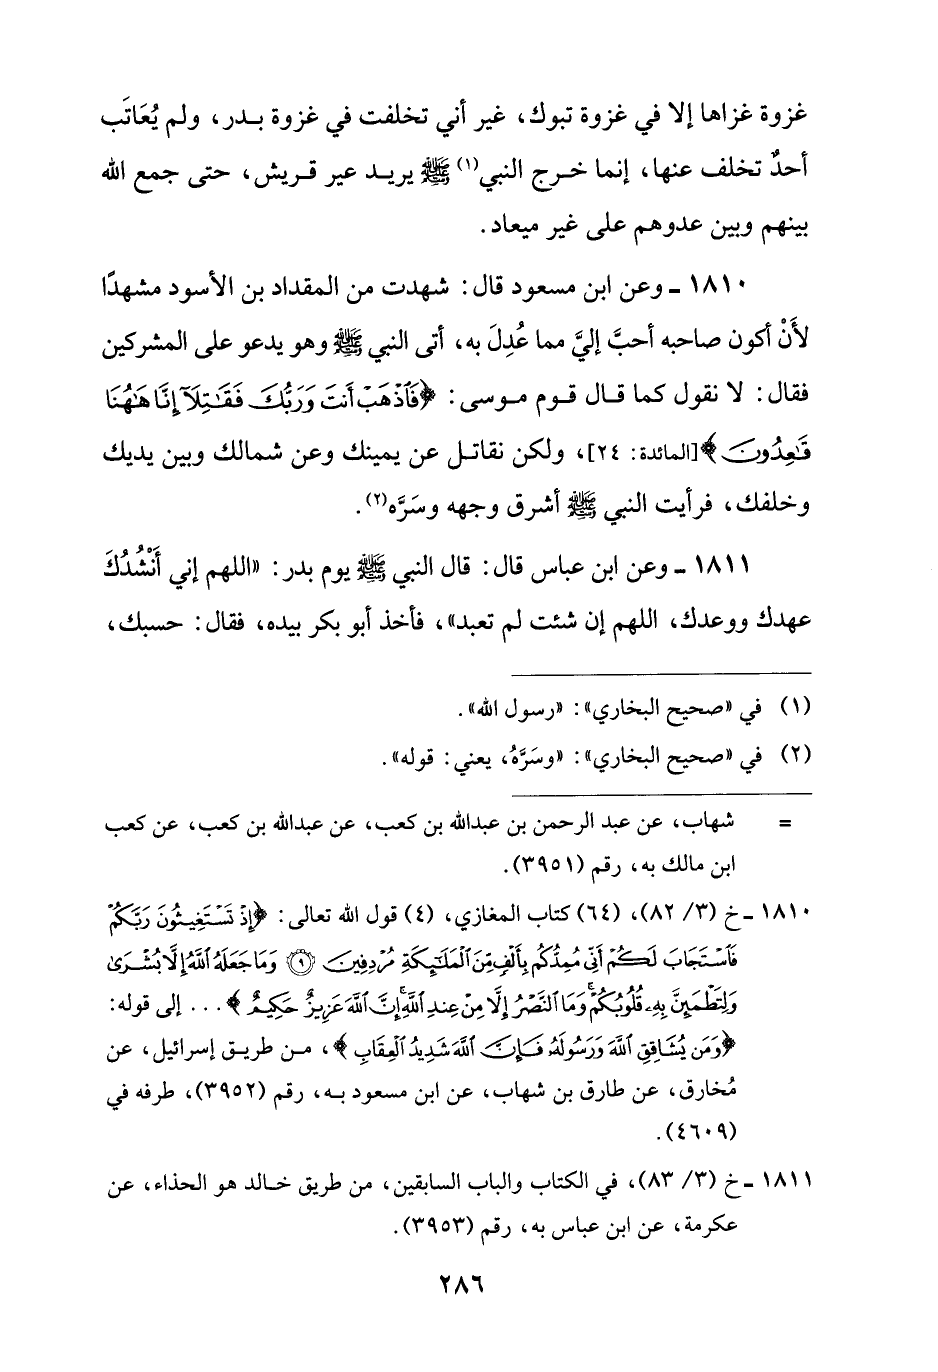 غزوة غزاها إلا في غزوة تبوك، غير أني تخلفت في غزوة بدر، ولم يُعَاتَب
أحدٌ تخلف عنها، إنما خرج النبي(١) ﷺ يريد عير قريش، حتى جمع الله
بينهم وبين عدوهم على غير ميعاد.
١٨١٠ ـ وعن ابن مسعود قال: شهدت من المقداد بن الأسود مشهدًا
لأَنْ أكون صاحبه أحبَّ إليَّ مما عُدِلَ به، أتى النبي ﷺ وهو يدعو على المشركين
فقال: لا نقول كما قال قوم موسى: ﴿فَٱذْهَبْ أَنتَ وَرَبُّكَ فَقَٰتِلَآ إِنَّا هَٰهُنَا
قَٰعِدُونَ﴾ [المائدة: ٢٤]، ولكن نقاتل عن يمينك وعن شمالك وبين يديك
وخلفك، فرأيت النبي ﷺ أشرق وجهه وسَرَّه(٢).
١٨١١ ـ وعن ابن عباس قال: قال النبي ﷺ يوم بدر: «اللهم إني أَنْشُدُكَ
عهدك ووعدك، اللهم إن شئت لم تعبد»، فأخذ أبو بكر بيده، فقال: حسبك،
(١) في «صحيح البخاري»: «رسول الله».
(٢) في «صحيح البخاري»: «وسَرَّهُ، يعني: قوله».
= شهاب، عن عبد الرحمن بن عبدالله بن كعب، عن عبدالله بن كعب، عن كعب
ابن مالك به، رقم (٣٩٥١).
١٨١٠ ـ خ (٣/ ٨٢)، (٦٤) كتاب المغازي، (٤) قول الله تعالى: ﴿إِذْ تَسْتَغِيثُونَ رَبَّكُمْ
فَٱسْتَجَابَ لَكُمْ أَنِّي مُمِدُّكُم بِأَلْفٍ مِّنَ ٱلْمَلَٰٓئِكَةِ مُرْدِفِينَ ۝٩ وَمَا جَعَلَهُ ٱللَّهُ إِلَّا بُشْرَىٰ
وَلِتَطْمَئِنَّ بِهِۦ قُلُوبُكُمْ ۚ وَمَا ٱلنَّصْرُ إِلَّا مِنْ عِندِ ٱللَّهِ ۚ إِنَّ ٱللَّهَ عَزِيزٌ حَكِيمٌ﴾ ... إلى قوله:
﴿وَمَن يُشَاقِقِ ٱللَّهَ وَرَسُولَهُۥ فَإِنَّ ٱللَّهَ شَدِيدُ ٱلْعِقَابِ﴾، من طريق إسرائيل، عن
مُخارق، عن طارق بن شهاب، عن ابن مسعود به، رقم (٣٩٥٢)، طرفه في
(٤٦٠٩).
١٨١١ ـ خ (٣/ ٨٣)، في الكتاب والباب السابقين، من طريق خالد هو الحذاء، عن
عكرمة، عن ابن عباس به، رقم (٣٩٥٣).
٢٨٦